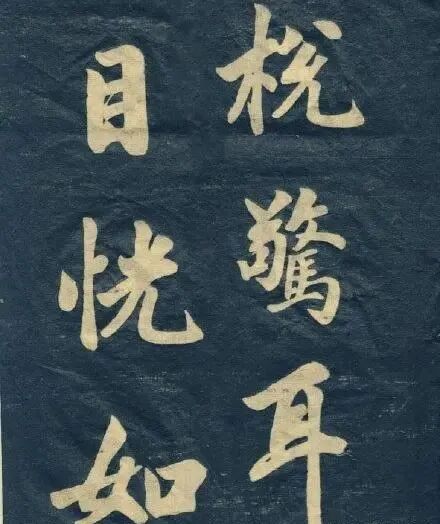 棁驚耳
目恍如